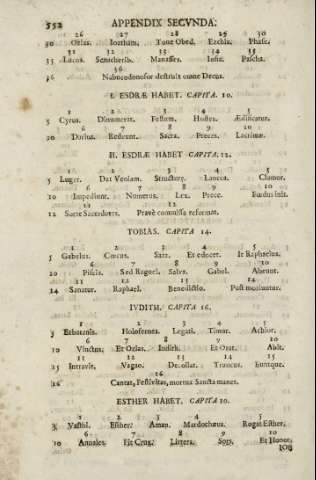 552 APPENDIX SECVNDA:
26 27 28 29 30
30 Ozias. Ioathan. Tunc Obed. Ezchia. Phase.
31 32 33 34 35
35 Lucos. Senacherib. Manasses. Iosia. Pascha.
36
36 Nabucodonosor destruit omne Decus.
I. ESDRÆ HABET. CAPITA. 10.
1 2 3 4 5
5 Cyrus. Dinumerat. Festum. Hostes. Ædificatur.
6 7 8 9 10
10 Darius. Redeunt. Sacra. Preces. Lacrimæ.
II. ESDRÆ HABET CAPITA. 12.
1 2 3 4 5
5 Luger. Dat Veniam. Structure. Lancea. Clamor.
6 7 8 9 10
10 Impediunt. Numerus. Lex. Prece. Fœdus init.
11 12
12 Sorte Sacerdotes. Pravè commissa reformat.
TOBIAS. CAPITA 14.
1 2 3 4 5
5 Gabelus. Cæcus. Sara. Et edocet. It Raphaelus.
6 7 8 9 10
10 Piscis. Sed Raguel. Salva. Gabel. Abeunt.
11 12 13 14
14 Sanatur. Raphael. Benedictio. Post moriuntur.
IVDITH. CAPITA 16.
1 2 3 4 5
5 Holofernes. Legati. Timor. Achior.
6 7 8 9 10
10 Vinctus. Et Ozias. Iudith. Et Orat. Abit.
11 12 13 14 15
15 Intravit. Vagao. Decollat. Truncus. Euntque.
16
16 Cantat, Festivitas, mortua Sancta manet.
ESTHER HABET. CAPITA 10.
1 2 3 4 5
5 Vasthi. Esther. Aman. Mardochæus. Rogat Esther.
6 7 8 9 10
10 Annales. Fit Crux. Litera. Et Honor.
IOB